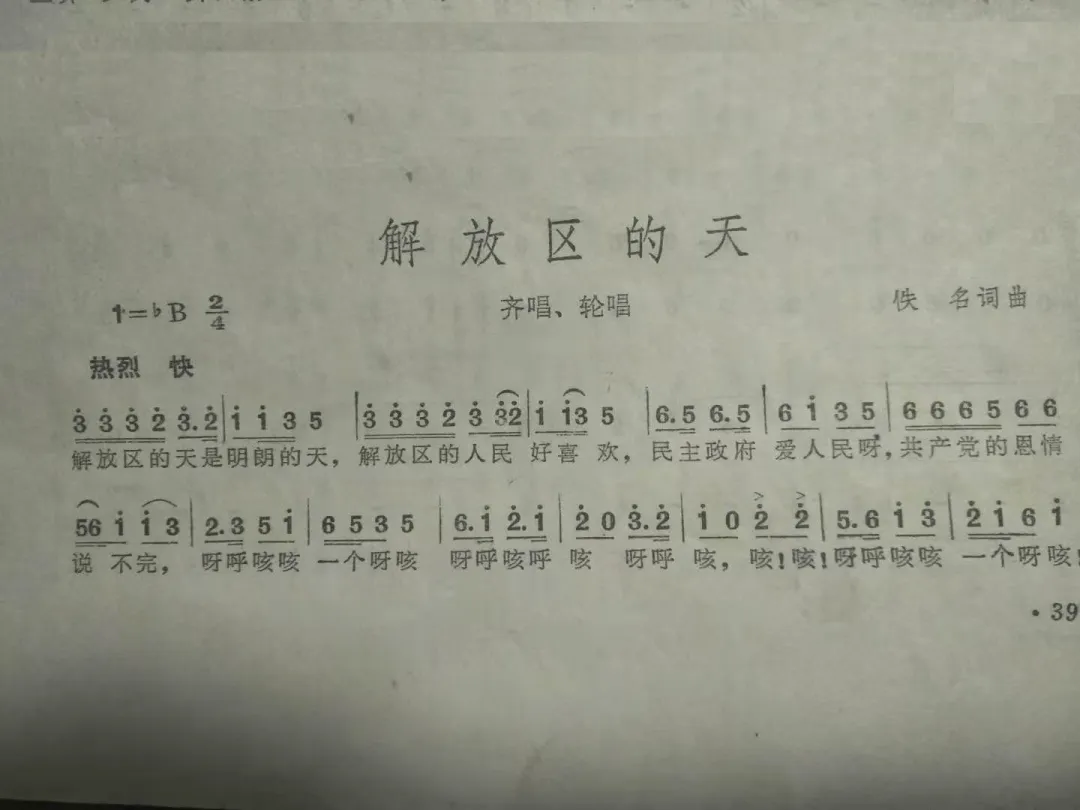 解放区的天
1=♭B 2/4 齐唱、轮唱 佚 名词曲
热烈 快
3̇ 3̇ 3̇ 2̇ 3̇.2̇ | i i 3 5 | 3̇ 3̇ 3̇ 2̇ 3̇ 3̇2̇ | i i3 5 | 6.5 6.5 | 6 i 3 5 | 6 6 6 5 6 6
解放区的天是明朗的天，解放区的人民 好喜 欢，民主政府 爱人民呀，共产党的恩情
56 i i 3 | 2.3 5 i | 6 5 3 5 | 6.i 2̇.i | 2̇ 0 3̇.2̇ | i 0 2̇ 2̇ | 5.6 i 3̇ | 2̇ i 6 i
说 不完，呀呼咳咳 一个呀咳 呀呼咳呼 咳 呀呼 咳，咳！咳！呀呼咳咳 一个呀咳！
•39